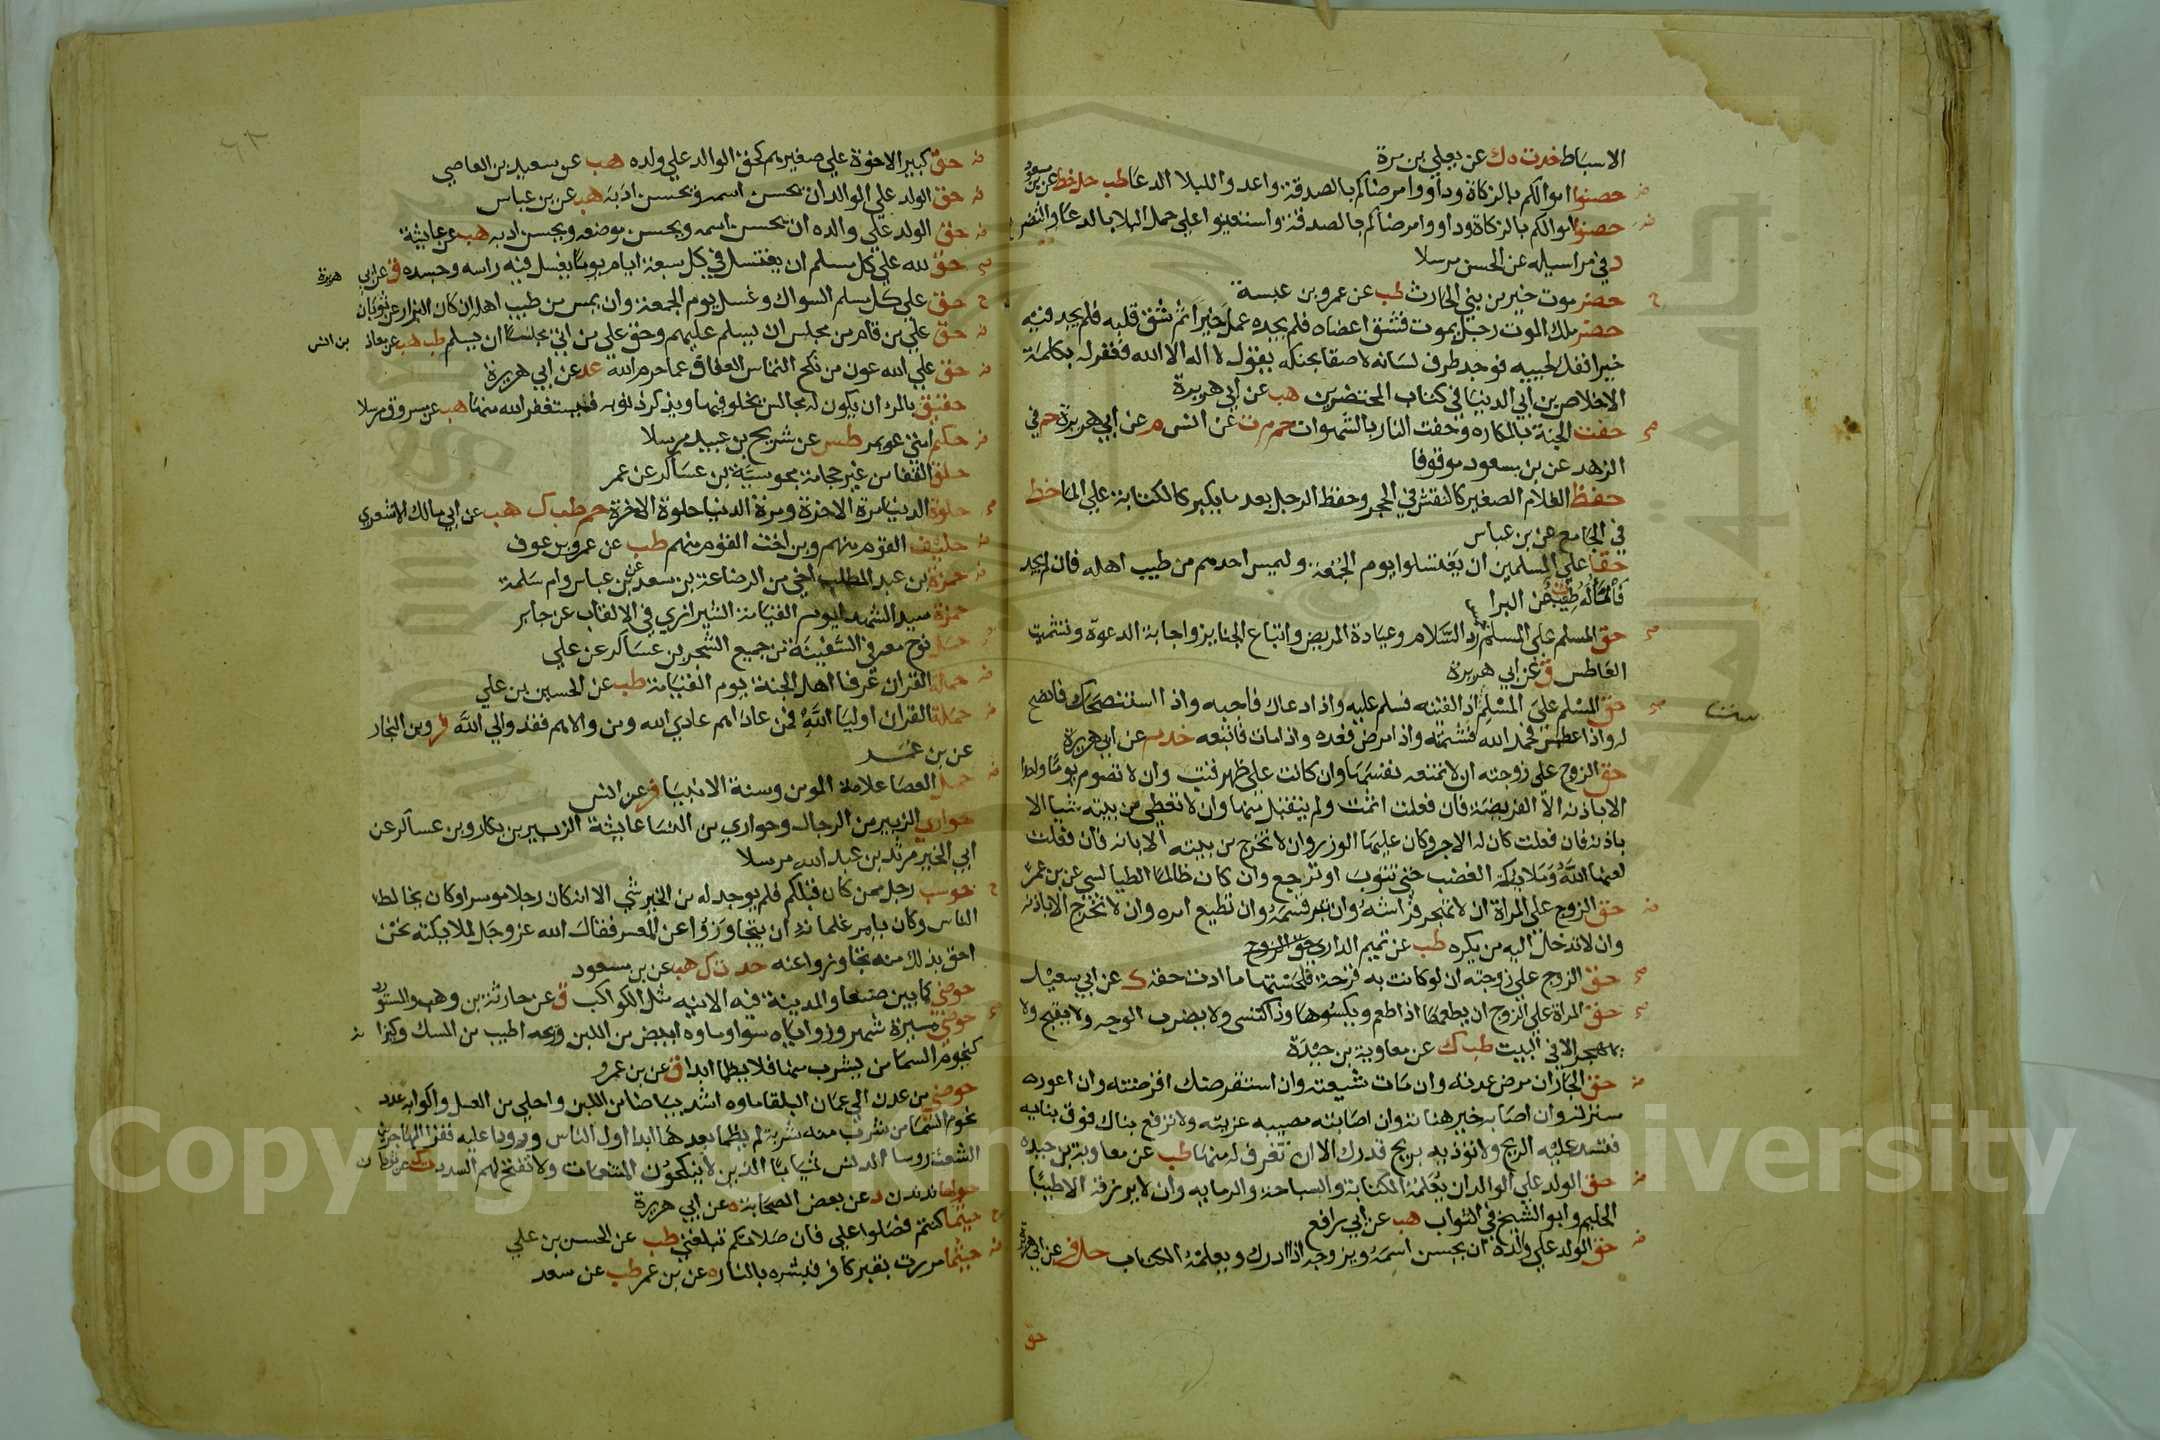 الاسباط خد ت ه ك عن يعلي بن مرة
حصنوا اموالكم بالزكاة وداووا مرضاكم بالصدقة واعدوا للبلا الدعا طب حل خط عن بن مسعود
حصنوا اموالكم بالزكاة وداووا مرضاكم بالصدقة واستعينوا علي حمل البلا بالدعا والتضرع
د في مراسيله عن الحسن مرسلا
حضرموت خير من بني الحارث طب عن عمرو بن عبسة
حضر ملك الموت رجلا يموت فشق اعضاه فلم يجده عمل خيرا ثم شق قلبه فلم يجد فيه
خيرا ففك لحييه فوجد طرف لسانه لاصقا بحنكه يقول لا اله الا الله فغفر له بكلمة
الاخلاص بن ابي الدنيا في كتاب المحتضرين هب عن ابي هريرة
حفت الجنة بالمكاره وحفت النار بالشهوات حم م ت عن انس م عن ابي هريرة حم في
الزهد عن بن مسعود موقوفا
حفظ الغلام الصغير كالنقش في الحجر وحفظ الرجل بعد ما يكبر كالكتابة علي الما خط
في الجامع عن بن عباس
حقا علي المسلمين ان يغتسلوا يوم الجمعة وليمس احدهم من طيب اهله فان لم يجد
فالماله طيب ت عن البرا
حق المسلم علي المسلم خمس رد السلام وعيادة المريض واتباع الجنايز واجابة الدعوة وتشميت
العاطس ق عن ابي هريرة
حق المسلم علي المسلم ست اذا لقيته فسلم عليه واذا دعاك فاجبه واذا استنصحك فانصح
له واذا عطس فحمد الله فشمته واذا مرض فعده واذا مات فاتبعه خد م عن ابي هريرة
حق الزوج علي زوجته ان لا تمنعه نفسها وان كانت علي ظهر قتب وان لا تصوم يوما واحدا
الا باذنه الا الفريضة فان فعلت اثمت ولم يتقبل منها وان لا تعطي من بيته شيا الا
باذنه فان فعلت كان له الاجر وكان عليها الوزر وان لا تخرج من بيته الا باذنه فان فعلت
لعنها الله وملايكة الغضب حتي تتوب او ترجع وان كان ظالما الطيالسي عن بن عمر
حق الزوج علي المراة ان لا تهجر فراشه وان تبر قسمه وان تطيع امره وان لا تخرج الا باذنه
وان لا تدخل اليه من يكره طب عن تميم الداري
حق الزوج علي زوجته ان لو كانت به قرحة فلحستها ما ادت حقه ك عن ابي سعيد
حق المراة علي الزوج ان يطعمها اذا طعم ويكسوها اذا اكتسي ولا يضرب الوجه ولا يقبح ولا
يهجر الا في البيت طب ك عن معاوية بن حيدة
حق الجار ان مرض عدته وان مات شيعته وان استقرضك اقرضته وان اعوره
سترته وان اصابه خير هناته وان اصابته مصيبه عزيته ولا ترفع بناك فوق بنايه
فتسد عليه الريح ولا توذيه بريح قدرك الا ان تغرف له منها طب عن معاوية بن حيده
حق الولد علي الوالد ان يعلمه الكتابة والسباحة والرمايه وان لا يرزقه الا طيبا
الحكيم وابو الشيخ في الثواب هب عن ابي رافع
حق الولد علي والده ان يحسن اسمه ويزوجه اذا ادرك ويعلمه الكتاب حل فر عن ابي هريرة
حق
حق كبير الاخوة علي صغيرهم كحق الوالد علي ولده هب عن سعيد بن العاصي
حق الولد علي الوالد ان يحسن اسمه ويحسن ادبه هب عن بن عباس
حق الولد علي والده ان يحسن اسمه ويحسن موضعه ويحسن ادبه هب عن عايشة
حق لله علي كل مسلم ان يغتسل في كل سبعة ايام يوما يغسل فيه راسه وجسده ق عن ابي هريرة
حق علي كل مسلم السواك وغسل يوم الجمعة وان يمس من طيب اهله ان كان البزار عن ثوبان
حق علي من قام من مجلس ان يسلم عليهم وحق علي من اتي مجلسا ان يسلم طب هب عن معاذ بن انس
حق علي الله عون من نكح التماس العفاف عما حرم الله عد عن ابي هريرة
حقيق بالمرء ان يكون له مجالس يخلو فيها ويذكر ذنوبه فيستغفر الله منها هب عن مسروق مرسلا
حكيم امتي عويمر طس عن شريح بن عبيد مرسلا
حلق القفا من غير حجامة مجوسية بن عساكر عن عمر
حلوة الدنيا مرة الاخرة ومرة الدنيا حلوة الاخرة حم طب ك هب عن ابي مالك الاشعري
حليف القوم منهم وبن اخت القوم منهم طب عن عمرو بن عوف
حمزة بن عبد المطلب اخي من الرضاعة بن سعد عن بن عباس وام سلمة
حمزة سيد الشهدا يوم القيامة الشيرازي في الالقاب عن جابر
حمل نوح معه في السفينة من جميع الشجر بن عساكر عن علي
حملة القران عرفا اهل الجنة يوم القيامة طب عن الحسين بن علي
حملة القران اوليا الله فمن عاداهم عادي الله ومن والاهم فقد والي الله فر وبن النجار
عن بن عمر
حمل العصا علامة المومن وسنة الانبيا فر عن انس
حواري الزبير من الرجال وحواري من النسا عايشة الزبير بن بكار وبن عساكر عن
ابي الخير مرثد بن عبد الله مرسلا
حوسب رجل ممن كان قبلكم فلم يوجد له من الخير شي الا انه كان رجلا موسرا وكان يخالط
الناس وكان يامر غلمانه ان يتجاوزوا عن المعسر فقال الله عز وجل لملايكته نحن
احق بذلك منه تجاوزوا عنه خد ت ك هب عن بن مسعود
حوضي كما بين صنعا والمدينة فيه الانيه مثل الكواكب ق عن حارثة بن وهب والمستورد
حوضي مسيرة شهر وزواياه سوا وماوه ابيض من اللبن وريحه اطيب من المسك وكيزانه
كنجوم السما من يشرب منها فلا يظما ابدا ق عن بن عمرو
حوضي من عدن الي عمان البلقا ماوه اشد بياضا من اللبن واحلي من العسل واكوابه عدد
نجوم السما من شرب منه شربة لم يظما بعدها ابدا اول الناس ورودا عليه فقرا المهاجرين
الشعث روسا الدنس ثيابا الذين لا ينكحون المتنعمات ولا تفتح لهم السدد ت ك عن ثوبان
حولها ندندن د عن بعض الصحابة ه عن ابي هريرة
حيثما كنتم فصلوا علي فان صلاتكم تبلغني طب عن الحسن بن علي
حيثما مررت بقبر كافر فبشره بالنار ه عن بن عمر طب عن سعد
Copyright © King Saud University